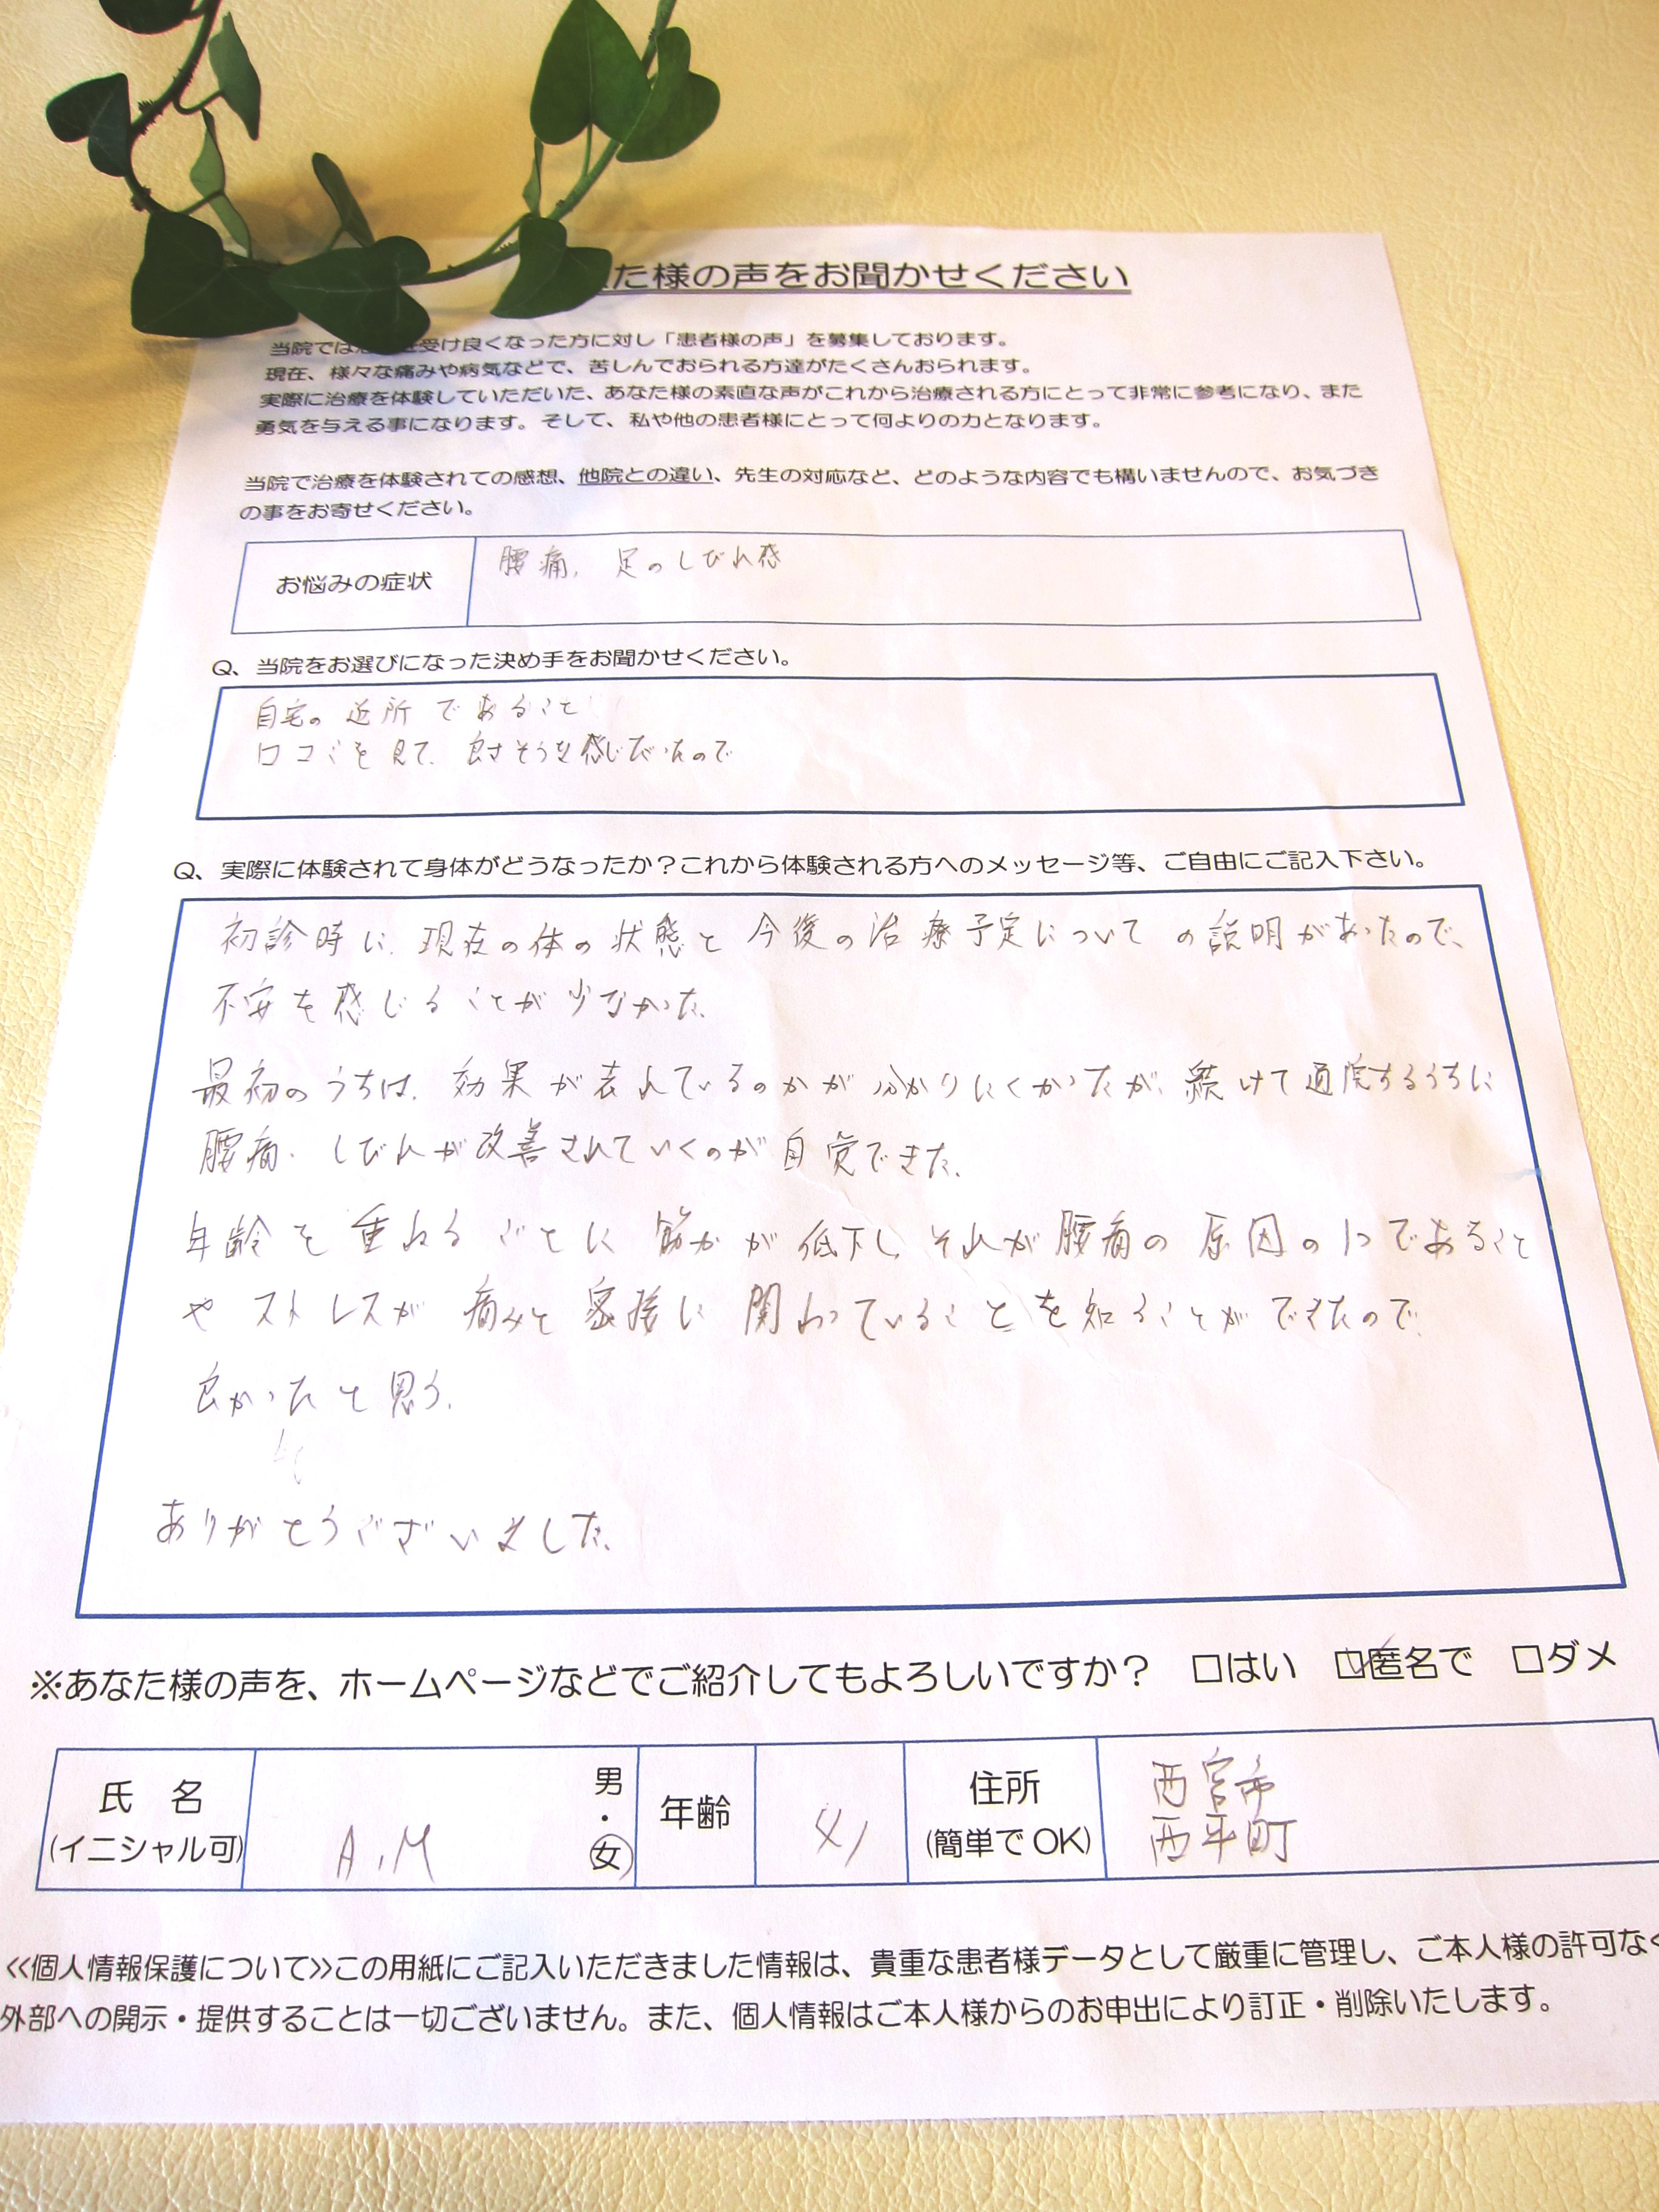 た様の声をお聞かせください
当院では を受け良くなった方に対し「患者様の声」を募集しております。
現在、様々な痛みや病気などで、苦しんでおられる方達がたくさんおられます。
実際に治療を体験していただいた、あなた様の素直な声がこれから治療される方にとって非常に参考になり、また
勇気を与える事になります。そして、私や他の患者様にとって何よりの力となります。
当院で治療を体験されての感想、他院との違い、先生の対応など、どのような内容でも構いませんので、お気づき
の事をお寄せください。
お悩みの症状
腰痛、足のしびれ感
Q、当院をお選びになった決め手をお聞かせください。
自宅の近所であること
口コミを見て、良さそうな感じだったので
Q、実際に体験されて身体がどうなったか？これから体験される方へのメッセージ等、ご自由にご記入下さい。
初診時に、現在の体の状態と今後の治療予定についての説明があったので、
不安を感じることが少なかった。
最初のうちは、効果が表れているのかが分かりにくかったが、続けて通院するうちに
腰痛、しびれが改善されていくのが自覚できた。
年齢を重ねるごとに筋力が低下し、それが腰痛の原因の1つであること
やストレスが痛みと密接に関わっていることを知ることができたので、
良かったと思う。
ありがとうございました。
※あなた様の声を、ホームページなどでご紹介してもよろしいですか？ □はい ☑匿名で □ダメ
氏 名
(イニシャル可)
A.M
男・女
年齢
41
住所
(簡単でOK)
西宮市
西平町
≪個人情報保護について≫この用紙にご記入いただきました情報は、貴重な患者様データとして厳重に管理し、ご本人様の許可なく
外部への開示・提供することは一切ございません。また、個人情報はご本人様からのお申出により訂正・削除いたします。